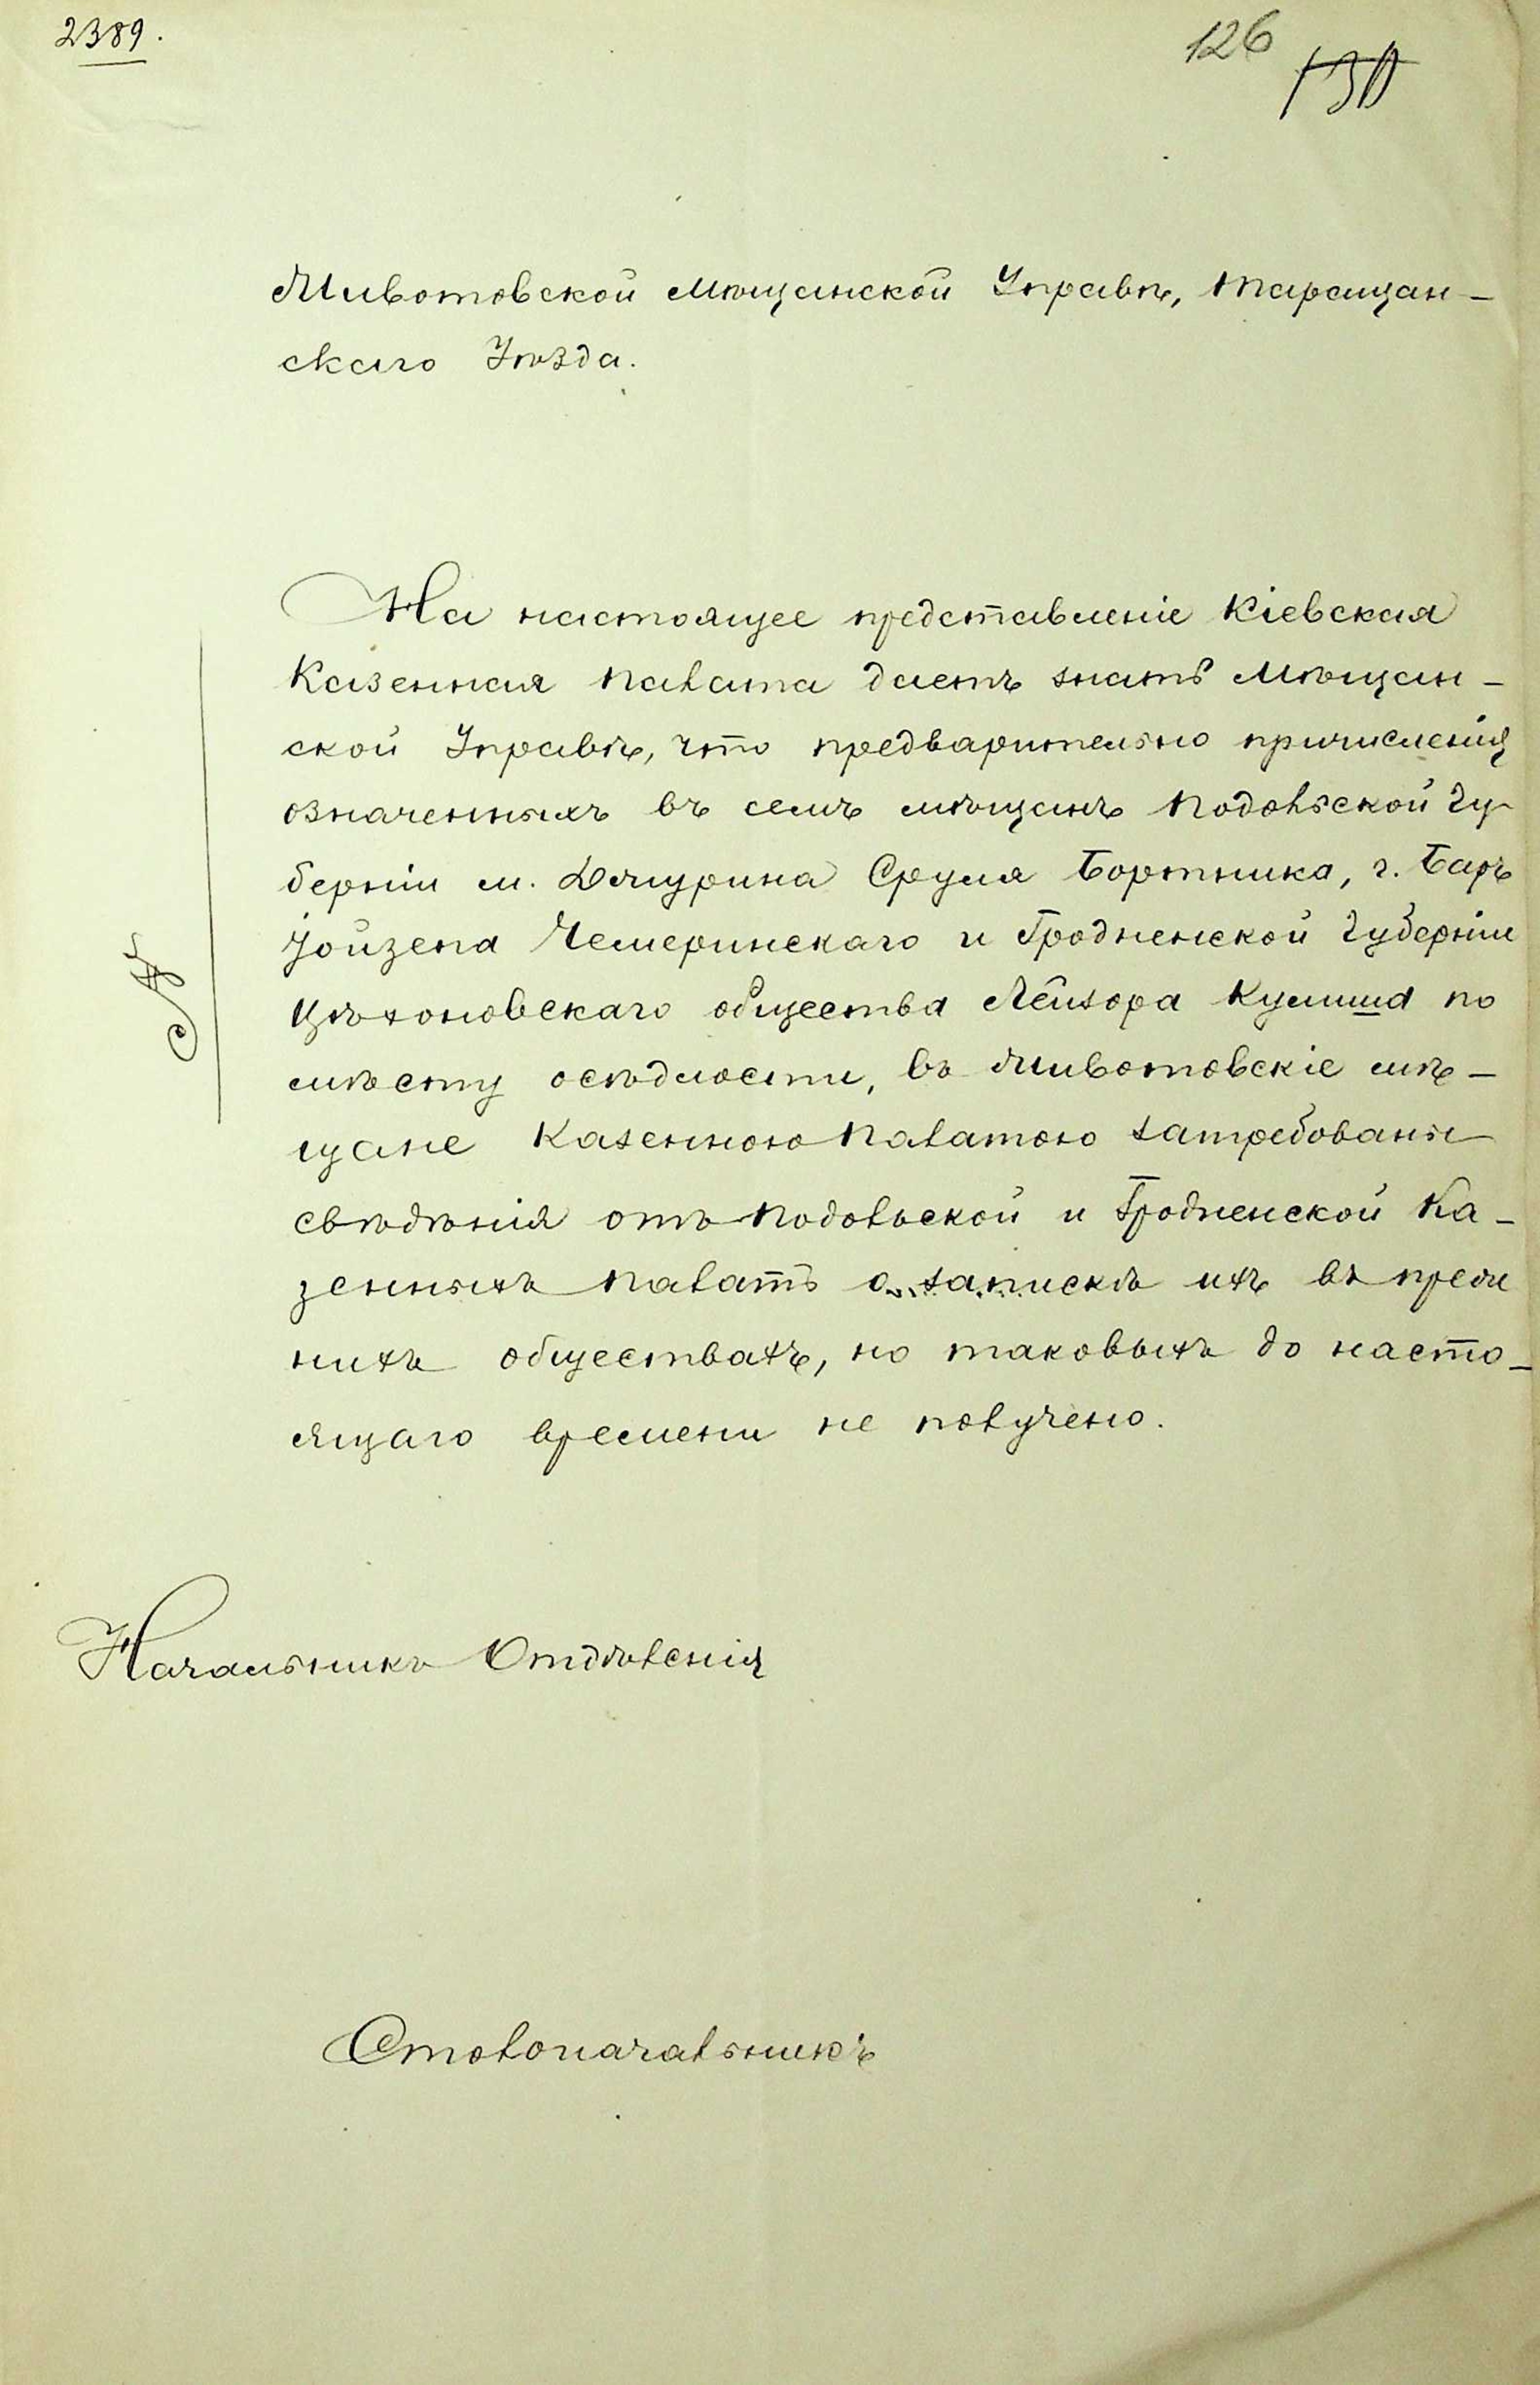 2389.
126
130
Животовской Мѣщанской Управѣ, Таращан-
скаго Уѣзда.
На настоящее представленіе Кіевская
Казенная Палата даетъ знать Мѣщан-
ской Управѣ, что предварительно причисленія
означенныхъ въ семъ мѣщанъ Подольской Гу-
берніи м. Джурина Сруля Бортника, г. Баръ
Іойзепа Чемеринскаго и Гродненской Губерніи
Цѣхоновскаго общества Лейзора Кулиша по
мѣсту осѣдлости, въ Животовскіе мѣ-
щане Казенною Палатою затребованы
свѣдѣнія отъ Подольской и Гродненской Ка-
зенныхъ Палатъ о запискѣ ихъ въ преж
нихъ обществахъ, но таковыхъ до насто-
ящаго времени не получено.
Начальникъ Отдѣленія
Столоначальникъ